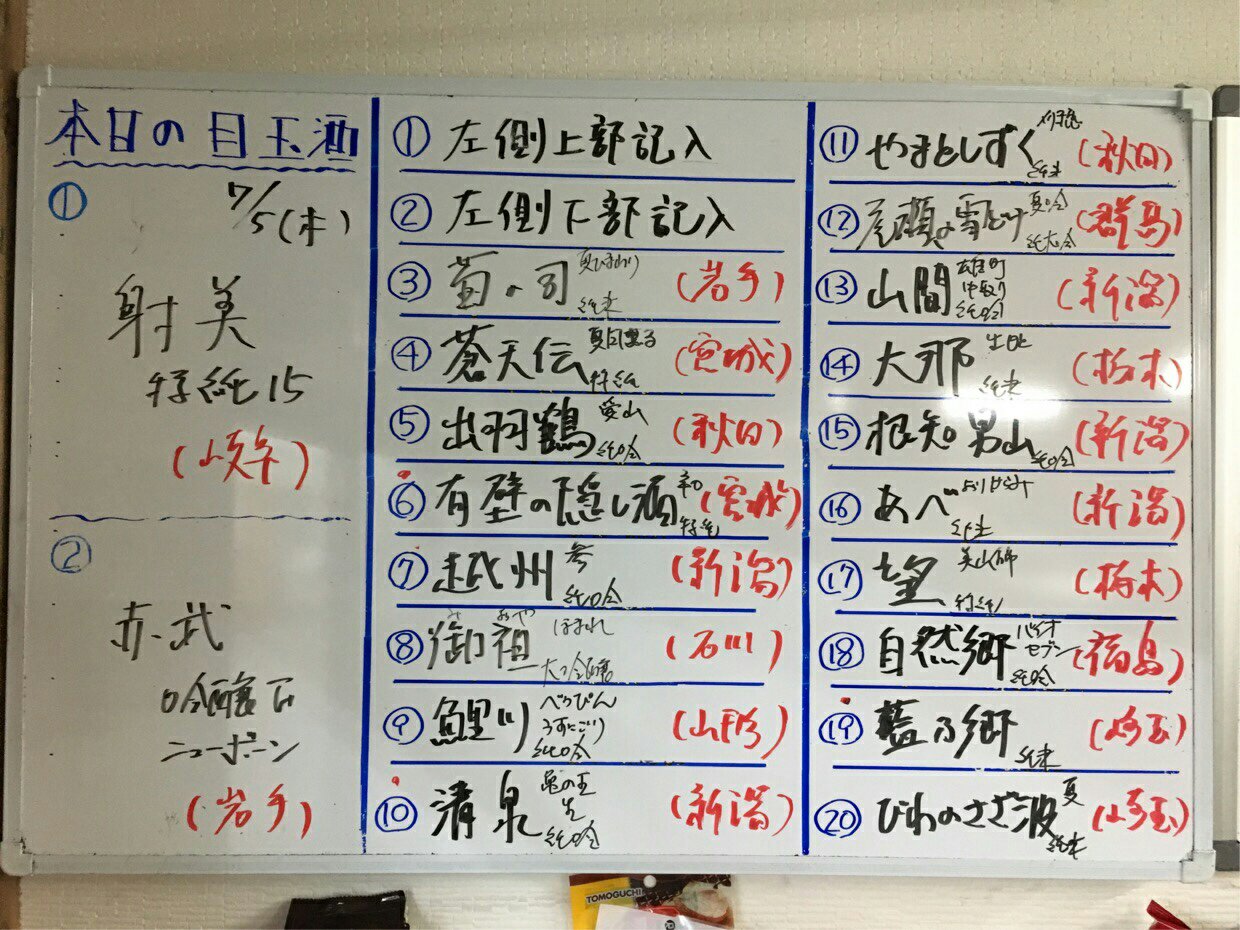 本日の目玉酒
①
7/5(木)
射美
特純15
(岐阜)
②
赤武
吟醸
ニューボーン
(岩手)
① 左側上部記入
② 左側下部記入
③ 菊の司 夏ひまわり 純米 (岩手)
④ 蒼天伝 特純 (宮城)
⑤ 出羽鶴 愛山 純吟 (秋田)
⑥ 有壁の隠し酒 和 特純 (宮城)
⑦ 越州 参 純吟 (新潟)
⑧ 御祖 みおや ほまれ 大吟醸 (石川)
⑨ 鯉川 べっぴん うすにごり 純吟 (山形)
⑩ 清泉 亀の王 生 純吟 (新潟)
⑪ やまとしずく 純米 (秋田)
⑫ 尾瀬の雪どけ 夏吟 純大吟 (群馬)
⑬ 山間 雄町 中取り 純吟 (新潟)
⑭ 大那 純米 (栃木)
⑮ 根知男山 純吟 (新潟)
⑯ あべ 純米 (新潟)
⑰ 望 美山錦 特純 (栃木)
⑱ 自然郷 バイオ セブン 純吟 (福島)
⑲ 藍の郷 純米 (埼玉)
⑳ びわのさざ波 夏 純米 (埼玉)
TOMOGUCHI